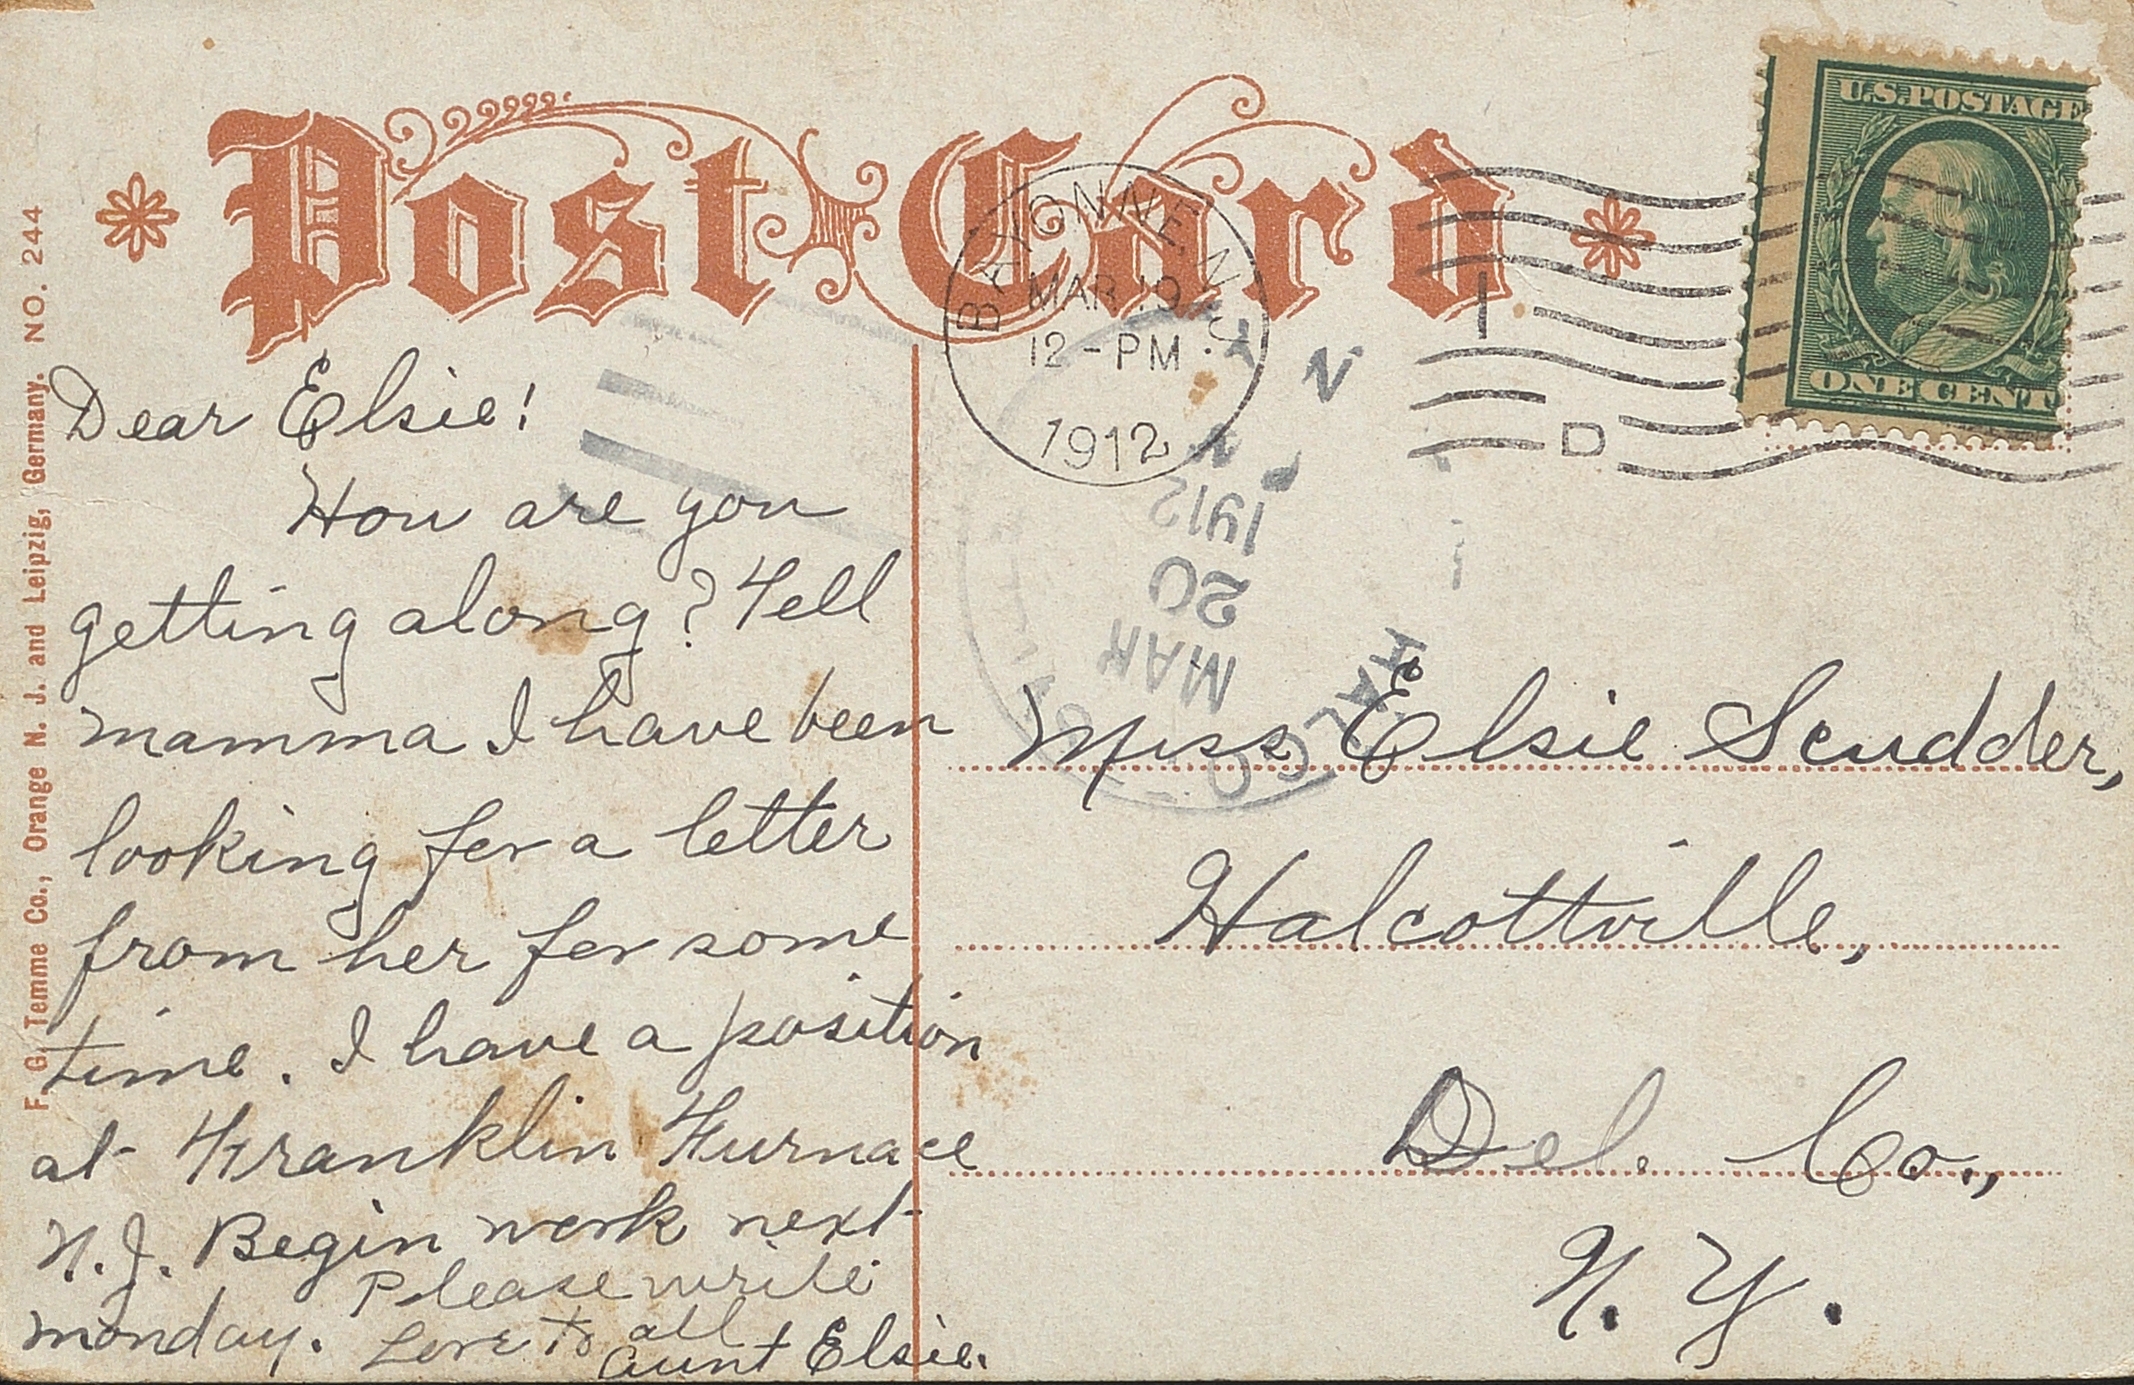 Post Card
F. G. Temme Co., Orange N. J. and Leipzig, Germany. NO. 244
U.S. POSTAGE
ONE CENT
BAYONNE N.J.
MAR 19
12-PM
1912
D
HALCO
N.Y.
MAR
20
1912
Dear Elsie!
How are you
getting along? Tell
mamma I have been
looking for a letter
from her for some
time. I have a position
at Franklin Furnace
N.J. Begin work next
monday. Please write
Love to all
Aunt Elsie.
Miss Elsie Scudder,
Halcottville,
Del. Co.,
N. Y.